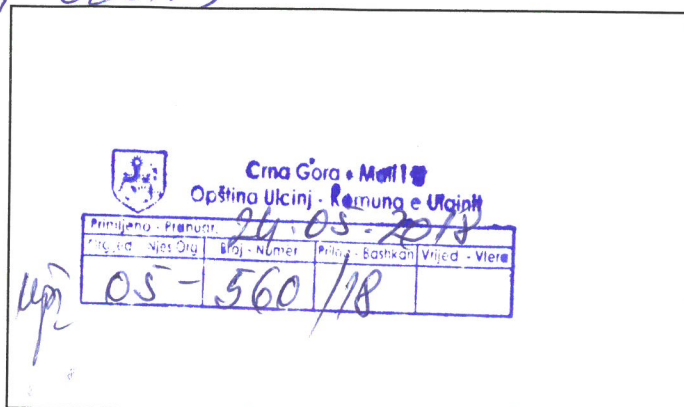 Crna Gora • Mali i
Opština Ulcinj - Komuna e Ulqinit
Primljeno - Pranuar 24.05-2018
Org.jed - Njes Org Broj - Numer Prilog - Bashkan Vrijed - Vlera
Upi 05- 560 /18